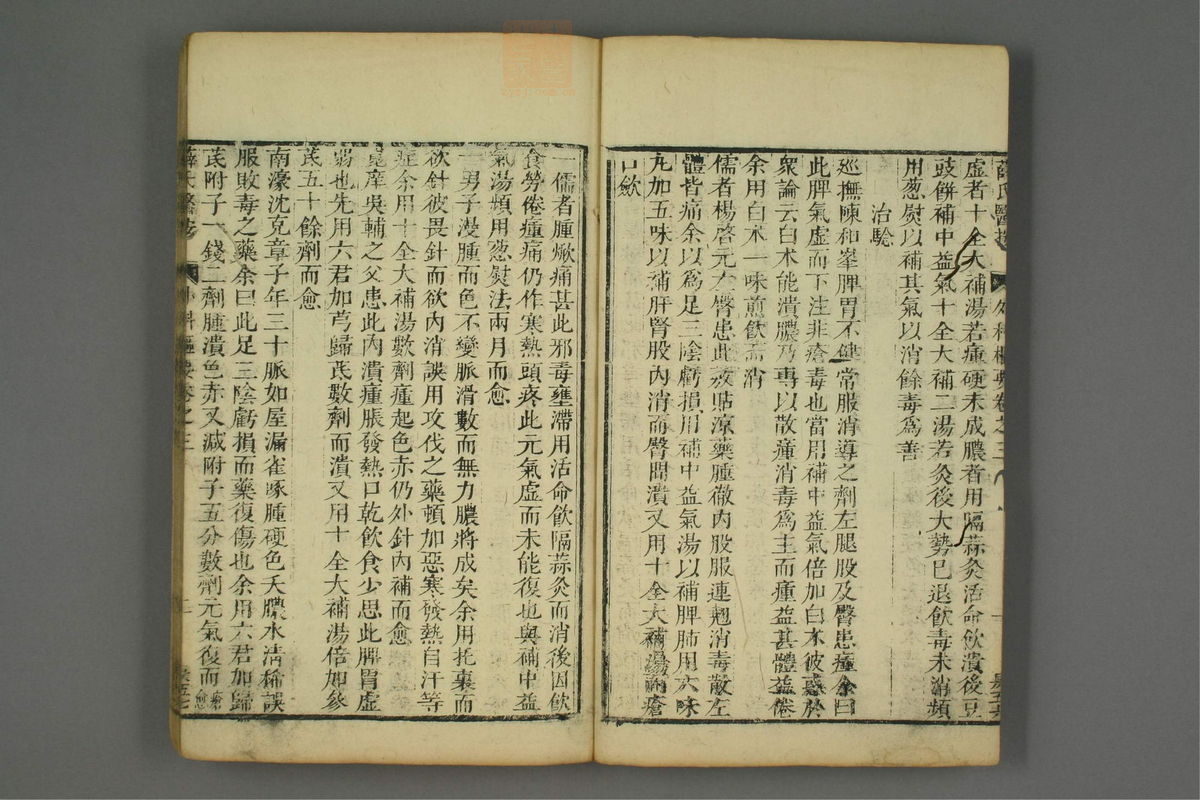 薛氏醫按 外科樞要卷之三
虛者十全大補湯若痛硬未成膿者用隔蒜灸活命飲潰後豆
豉餅補中益氣十全大補二湯若灸後大勢已退飲毒未消頻
用葱熨以補其氣以消餘毒爲善
治驗
巡撫陳和峯脾胃不健常服消導之劑左腿股及臀患腫余曰
此脾氣虛而下注非瘡毒也當用補中益氣倍加白朮彼惑於
衆論云白朮能潰膿乃專以散腫消毒爲主而腫益甚體益倦
余用白朮一味煎飲而消
儒者楊啓元左臀患此敷貼凉藥腫徹内股服連翹消毒散左
體皆痛余以爲足三陰虧損用補中益氣湯以補脾肺用六味
丸加五味以補肝腎股内消而臀間潰又用十全大補湯而瘡
口斂
一儒者腫焮痛甚此邪毒壅滯用活命飲隔蒜灸而消後因飲
食勞倦腫痛仍作寒熱頭疼此元氣虛而未能復也與補中益
氣湯頻用葱熨法兩月而愈
一男子漫腫而色不變脈滑數而無力膿將成矣余用托裏而
欲針彼畏針而欲内消誤用攻伐之藥頓加惡寒發熱自汗等
症余用十全大補湯數劑腫起色赤仍外針内補而愈
庭庠吳輔之父患此内潰腫脹發熱口乾飲食少思此脾胃虛
弱也先用六君加芎歸芪數劑而潰又用十全大補湯倍加參
芪五十餘劑而愈
南濠沈克章子年三十脈如屋漏雀啄腫硬色夭膿水清稀誤
服敗毒之藥余曰此足三陰虧損而藥復傷也余用六君加歸
芪附子一錢二劑腫潰色赤又減附子五分數劑元氣復而瘡愈
薛氏醫按 外科樞要卷之三 二